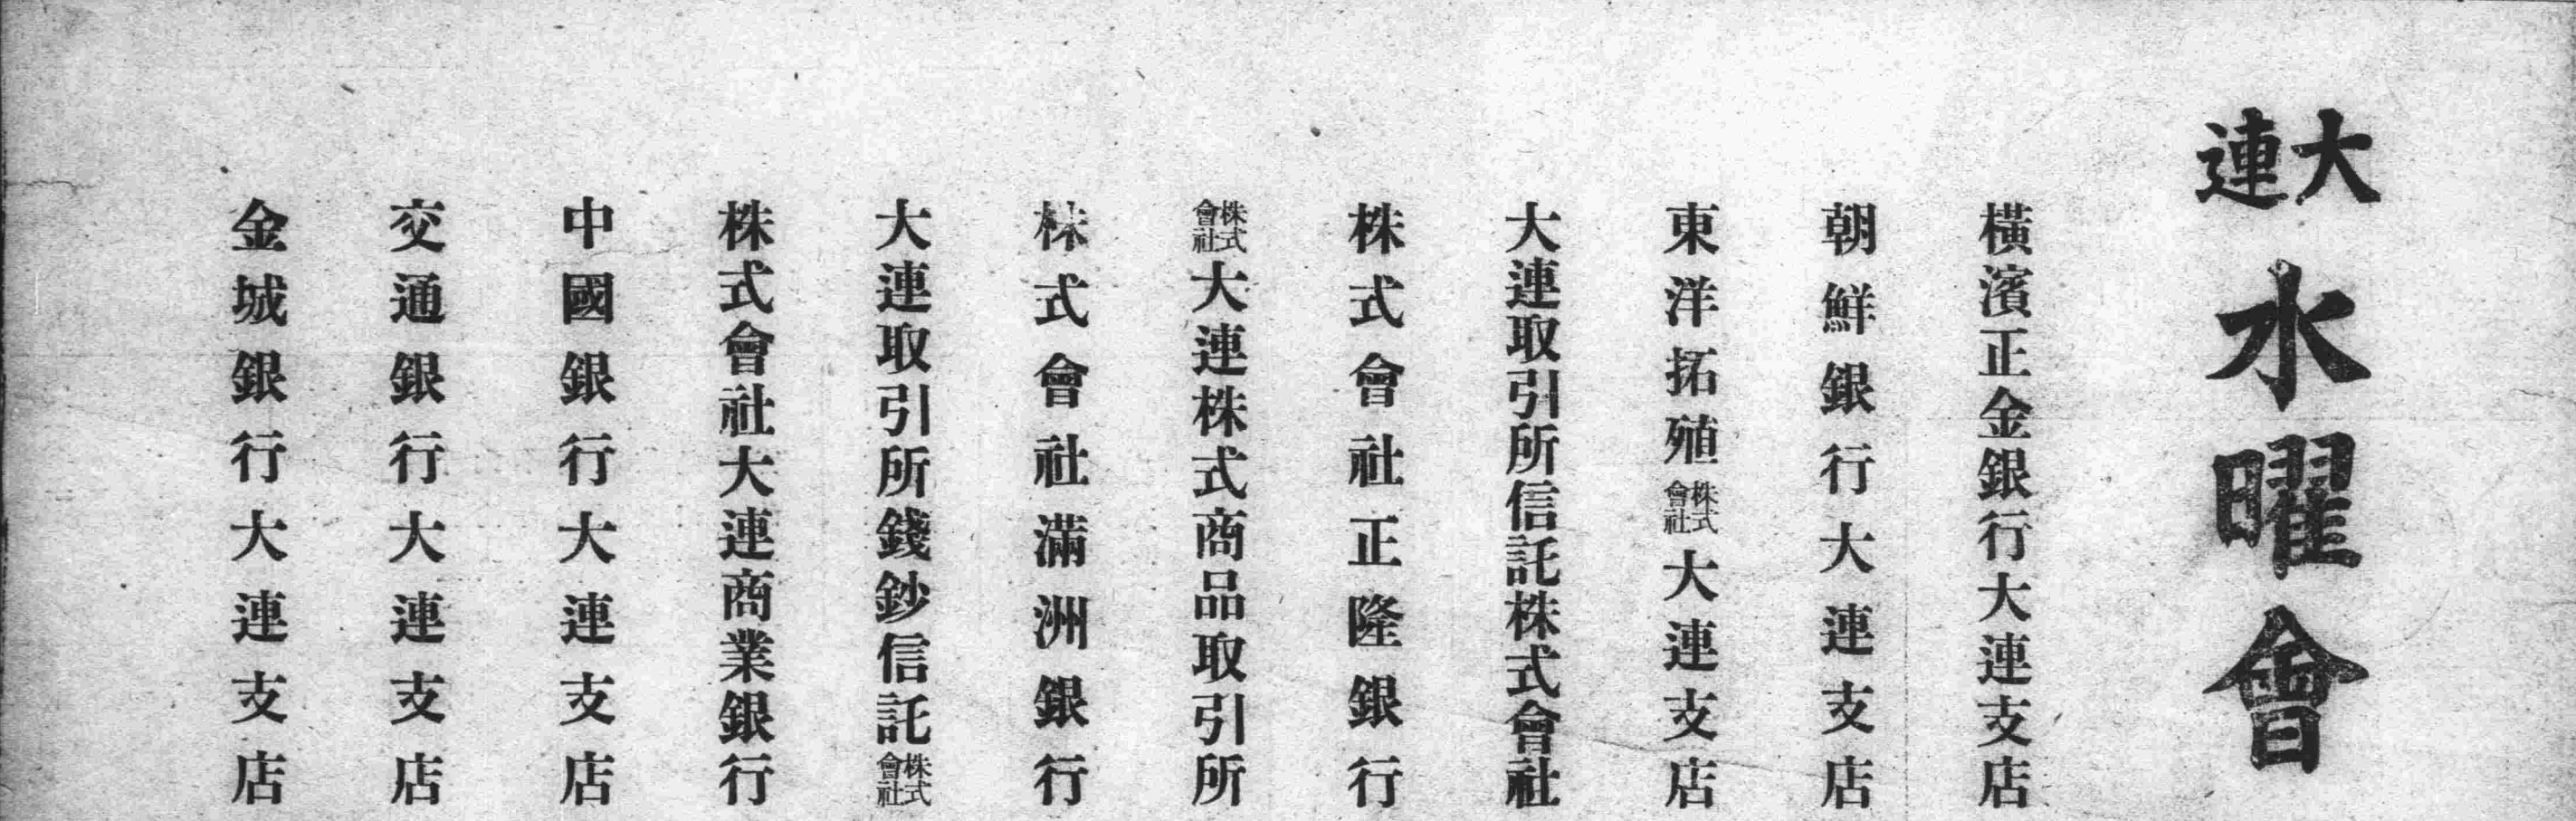 大連水曜會
橫濱正金銀行大連支店
朝鮮銀行大連支店
東洋拓殖株式會社大連支店
大連取引所信託株式會社
株式會社正隆銀行
株式會社大連株式商品取引所
株式會社滿洲銀行
大連取引所錢鈔信託株式會社
株式會社大連商業銀行
中國銀行大連支店
交通銀行大連支店
金城銀行大連支店